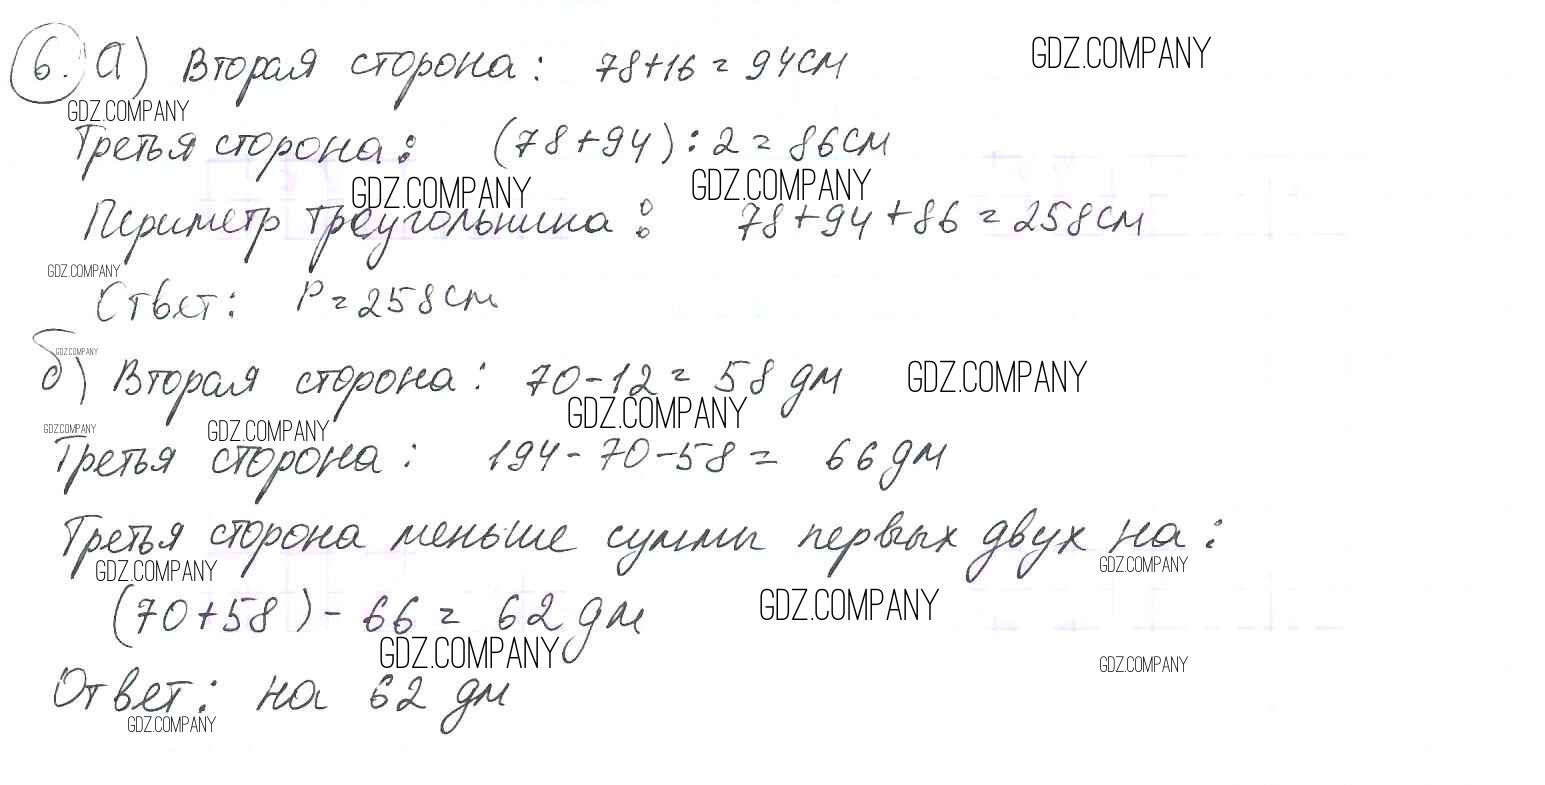 6. а) Вторая сторона: 78+16=94см
GDZ.COMPANY
GDZ.COMPANY
Третья сторона: (78+94):2=86см
GDZ.COMPANY GDZ.COMPANY
Периметр треугольника: 78+94+86=258см
GDZ.COMPANY
Ответ: P=258см
GDZ.COMPANY
б) Вторая сторона: 70-12=58 дм
GDZ.COMPANY
GDZ.COMPANY
GDZ.COMPANY GDZ.COMPANY
Третья сторона: 194-70-58= 66 дм
Третья сторона меньше суммы первых двух на:
GDZ.COMPANY GDZ.COMPANY
(70+58)-66= 62 дм
GDZ.COMPANY
GDZ.COMPANY GDZ.COMPANY
Ответ: на 62 дм
GDZ.COMPANY